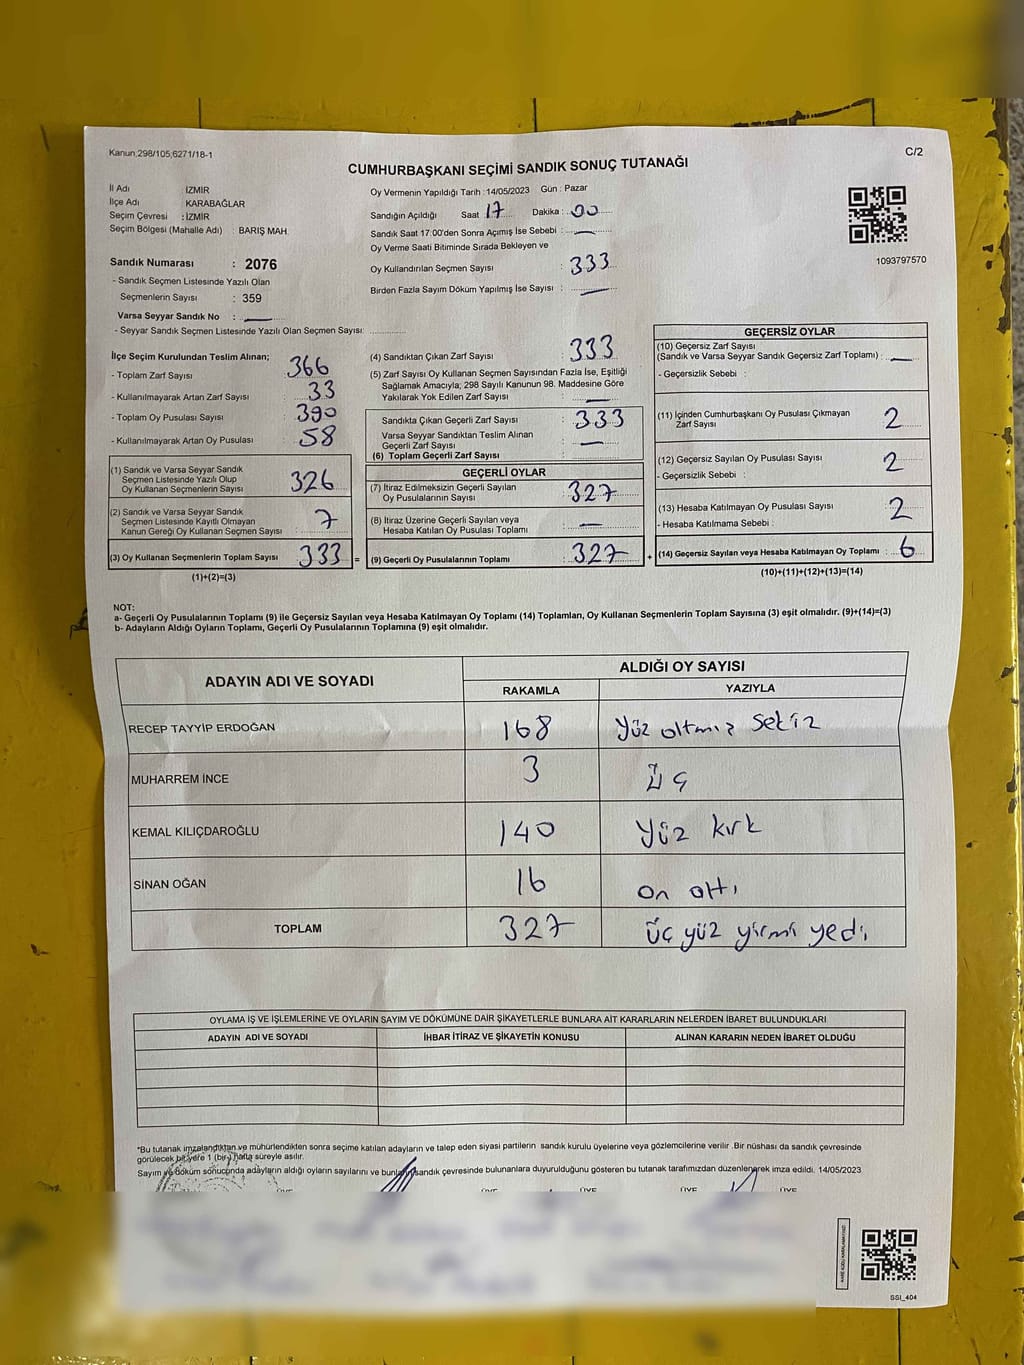 Kanun,298/105,6271/18-1
C/2
CUMHURBAŞKANI SEÇİMİ SANDIK SONUÇ TUTANAĞI
İl Adı İZMİR
İlçe Adı KARABAĞLAR
Seçim Çevresi : İZMİR
Seçim Bölgesi (Mahalle Adı) : BARIŞ MAH.
Sandık Numarası : 2076
- Sandık Seçmen Listesinde Yazılı Olan
Seçmenlerin Sayısı : 359
Varsa Seyyar Sandık No :
- Seyyar Sandık Seçmen Listesinde Yazılı Olan Seçmen Sayısı:
Oy Vermenin Yapıldığı Tarih : 14/05/2023 Gün : Pazar
Sandığın Açıldığı Saat 17 Dakika : 00
Sandık Saat 17:00'den Sonra Açımış İse Sebebi :
Oy Verme Saati Bitiminde Sırada Bekleyen ve
Oy Kullandırılan Seçmen Sayısı : 333
Birden Fazla Sayım Döküm Yapılmış İse Sayısı :
1093797570
İlçe Seçim Kurulundan Teslim Alınan;
- Toplam Zarf Sayısı : 366
- Kullanılmayarak Artan Zarf Sayısı : 33
- Toplam Oy Pusulası Sayısı : 390
- Kullanılmayarak Artan Oy Pusulası : 58
(1) Sandık ve Varsa Seyyar Sandık
Seçmen Listesinde Yazılı Olup
Oy Kullanan Seçmenlerin Sayısı : 326
(2) Sandık ve Varsa Seyyar Sandık
Seçmen Listesinde Kayıtlı Olmayan
Kanun Gereği Oy Kullanan Seçmen Sayısı : 7
(3) Oy Kullanan Seçmenlerin Toplam Sayısı : 333 =
(1)+(2)=(3)
(4) Sandıktan Çıkan Zarf Sayısı : 333
(5) Zarf Sayısı Oy Kullanan Seçmen Sayısından Fazla İse, Eşitliği
Sağlamak Amacıyla; 298 Sayılı Kanunun 98. Maddesine Göre
Yakılarak Yok Edilen Zarf Sayısı :
Sandıkta Çıkan Geçerli Zarf Sayısı : 333
Varsa Seyyar Sandıktan Teslim Alınan
Geçerli Zarf Sayısı :
(6) Toplam Geçerli Zarf Sayısı :
GEÇERLİ OYLAR
(7) İtiraz Edilmeksizin Geçerli Sayılan
Oy Pusulalarının Sayısı : 327
(8) İtiraz Üzerine Geçerli Sayılan veya
Hesaba Katılan Oy Pusulası Toplamı :
(9) Geçerli Oy Pusulalarının Toplamı : 327 +
GEÇERSİZ OYLAR
(10) Geçersiz Zarf Sayısı
(Sandık ve Varsa Seyyar Sandık Geçersiz Zarf Toplamı) :
- Geçersizlik Sebebi :
(11) İçinden Cumhurbaşkanı Oy Pusulası Çıkmayan
Zarf Sayısı : 2
(12) Geçersiz Sayılan Oy Pusulası Sayısı : 2
- Geçersizlik Sebebi :
(13) Hesaba Katılmayan Oy Pusulası Sayısı : 2
- Hesaba Katılmama Sebebi :
(14) Geçersiz Sayılan veya Hesaba Katılmayan Oy Toplamı : 6
(10)+(11)+(12)+(13)=(14)
NOT:
a- Geçerli Oy Pusulalarının Toplamı (9) ile Geçersiz Sayılan veya Hesaba Katılmayan Oy Toplamı (14) Toplamları, Oy Kullanan Seçmenlerin Toplam Sayısına (3) eşit olmalıdır. (9)+(14)=(3)
b- Adayların Aldığı Oyların Toplamı, Geçerli Oy Pusulalarının Toplamına (9) eşit olmalıdır.
ADAYIN ADI VE SOYADI ALDIĞI OY SAYISI
RAKAMLA YAZIYLA
RECEP TAYYİP ERDOĞAN 168 Yüz altmış sekiz
MUHARREM İNCE 3 Üç
KEMAL KILIÇDAROĞLU 140 Yüz kırk
SİNAN OĞAN 16 on altı
TOPLAM 327 üç yüz yirmi yedi
OYLAMA İŞ VE İŞLEMLERİNE VE OYLARIN SAYIM VE DÖKÜMÜNE DAİR ŞİKAYETLERLE BUNLARA AİT KARARLARIN NELERDEN İBARET BULUNDUKLARI
ADAYIN ADI VE SOYADI İHBAR İTİRAZ VE ŞİKAYETİN KONUSU ALINAN KARARIN NEDEN İBARET OLDUĞU
*Bu tutanak imzalandıktan ve mühürlendikten sonra seçime katılan adayların ve talep eden siyasi partilerin sandık kurulu üyelerine veya gözlemcilerine verilir .Bir nüshası da sandık çevresinde
görülecek bir yere 1 (bir ) hafta süreyle asılır.
Sayım ve döküm sonucunda adayların aldığı oyların sayılarını ve bunların sandık çevresinde bulunanlara duyurulduğunu gösteren bu tutanak tarafımızdan düzenlenerek imza edildi. 14/05/2023
ÜYE ÜYE ÜYE ÜYE
SSI_404